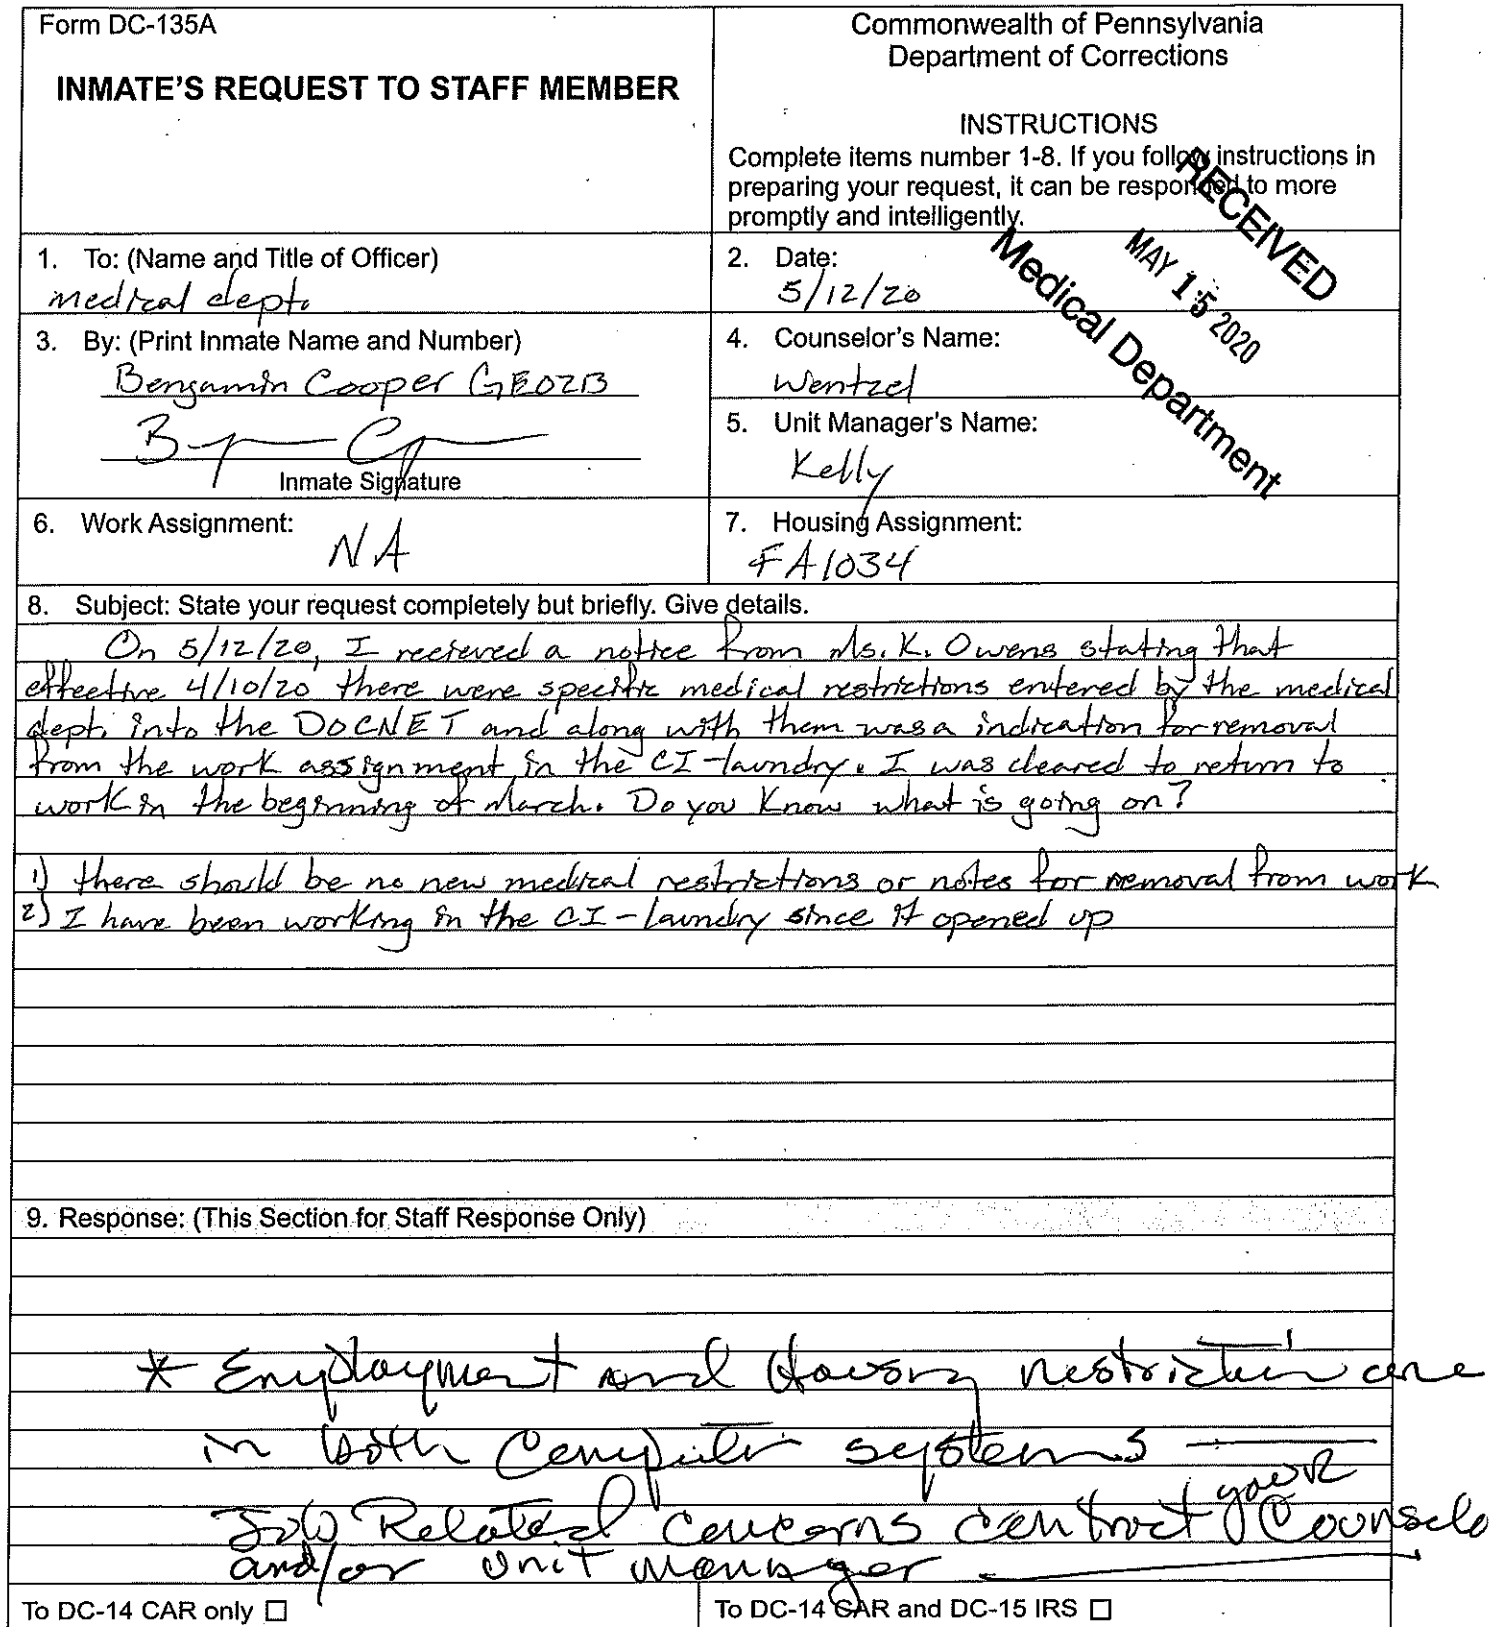 Form DC-135A
INMATE'S REQUEST TO STAFF MEMBER
Commonwealth of Pennsylvania
Department of Corrections
INSTRUCTIONS
Complete items number 1-8. If you follow instructions in
preparing your request, it can be responded to more
promptly and intelligently.
RECEIVED
MAY 15 2020
Medical Department
1. To: (Name and Title of Officer)
medical dept.
2. Date:
5/12/20
3. By: (Print Inmate Name and Number)
Benjamin Cooper GE0213
Inmate Signature
4. Counselor's Name:
Wentzel
5. Unit Manager's Name:
Kelly
6. Work Assignment:
NA
7. Housing Assignment:
FA1034
8. Subject: State your request completely but briefly. Give details.
On 5/12/20, I recieved a notice from Ms. K. Owens stating that
effective 4/10/20 there were specific medical restrictions entered by the medical
dept. into the DOCNET and along with them was a indication for removal
from the work assignment in the CI-laundry. I was cleared to return to
work in the beginning of March. Do you know what is going on?
1) there should be no new medical restrictions or notes for removal from work
2) I have been working in the CI-laundry since it opened up
9. Response: (This Section for Staff Response Only)
* Employment and Housing restriction are
in both Computer systems
Job Related concerns contact your Counselo
and/or unit manager
To DC-14 CAR only ☐
To DC-14 CAR and DC-15 IRS ☐